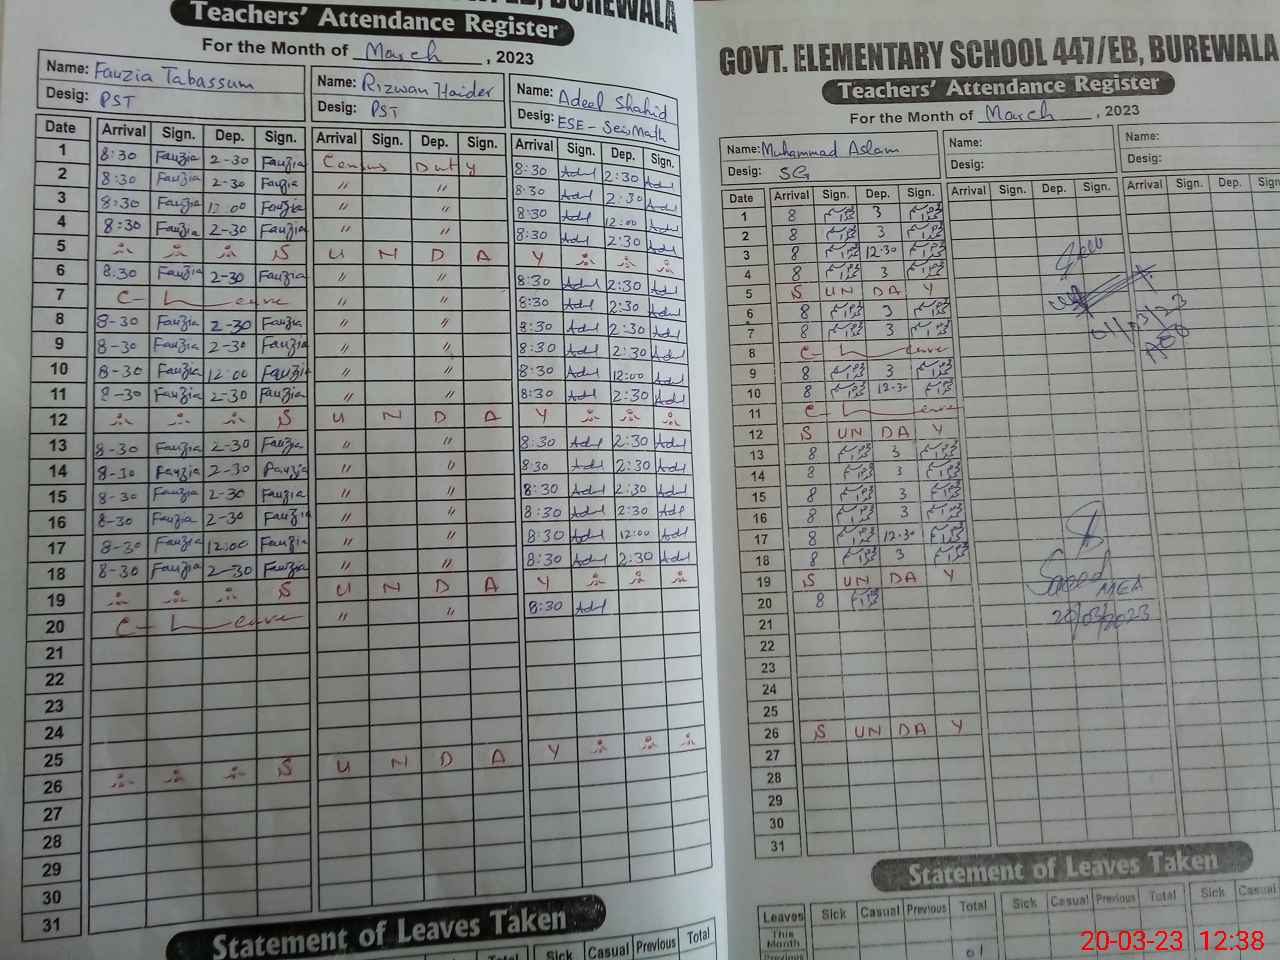 BUREWALA
Teachers' Attendance Register
For the Month of March, 2023
Name: Fauzia Tabassum Name: Rizwan Haider Name: Adeel Shahid
Desig: PST Desig: PST Desig: ESE - Sci Math
Date Arrival Sign. Dep. Sign. Arrival Sign. Dep. Sign. Arrival Sign. Dep. Sign.
1 8:30 Fauzia 2-30 Fauzia Census Duty 8:30 Adl 2:30 Adl
2 8:30 Fauzia 2-30 Fauzia " " 8:30 Adl 2:30 Adl
3 8:30 Fauzia 12:00 Fauzia " " 8:30 Adl 12:00 Adl
4 8:30 Fauzia 2-30 Fauzia " " 8:30 Adl 2:30 Adl
5 S U N D A Y
6 8:30 Fauzia 2-30 Fauzia " " 8:30 Adl 2:30 Adl
7 C- Leave " " 8:30 Adl 2:30 Adl
8 8-30 Fauzia 2-30 Fauzia " " 8:30 Adl 2:30 Adl
9 8-30 Fauzia 2-30 Fauzia " " 8:30 Adl 2:30 Adl
10 8-30 Fauzia 12:00 Fauzia " " 8:30 Adl 12:00 Adl
11 8-30 Fauzia 2-30 Fauzia " " 8:30 Adl 2:30 Adl
12 S U N D A Y
13 8-30 Fauzia 2-30 Fauzia " " 8:30 Adl 2:30 Adl
14 8-30 Fauzia 2-30 Fauzia " " 8:30 Adl 2:30 Adl
15 8-30 Fauzia 2-30 Fauzia " " 8:30 Adl 2:30 Adl
16 8-30 Fauzia 2-30 Fauzia " " 8:30 Adl 2:30 Adl
17 8-30 Fauzia 12:00 Fauzia " " 8:30 Adl 12:00 Adl
18 8-30 Fauzia 2-30 Fauzia " " 8:30 Adl 2:30 Adl
19 S U N D A Y
20 C- Leave " " 8:30 Adl
21
22
23
24
25
26 S U N D A Y
27
28
29
30
31
Statement of Leaves Taken
Sick Casual Previous Total
GOVT. ELEMENTARY SCHOOL 447/EB, BUREWALA
Teachers' Attendance Register
For the Month of March, 2023
Name: Muhammad Aslam Name: Name:
Desig: SG Desig: Desig:
Date Arrival Sign. Dep. Sign. Arrival Sign. Dep. Sign. Arrival Sign. Dep. Sign
1 8 3
2 8 3
3 8 12-30
4 8 3
5 S UN DA Y
6 8 3
7 8 3
8 C- Leave
9 8 3
10 8 12-3-
11 C- Leave
12 S UN DA Y
13 8 3
14 8 3
15 8 3
16 8 3
17 8 12-30
18 8 3
19 S UN DA Y
20 8
21
22
23
24
25
26 S UN DA Y
27
28
29
30
31
Saeed
MEA
20/03/2023
Statement of Leaves Taken
Leaves Sick Casual Previous Total Sick Casual Previous Total Sick Casual
This Month
Previous 01
20-03-23 12:38